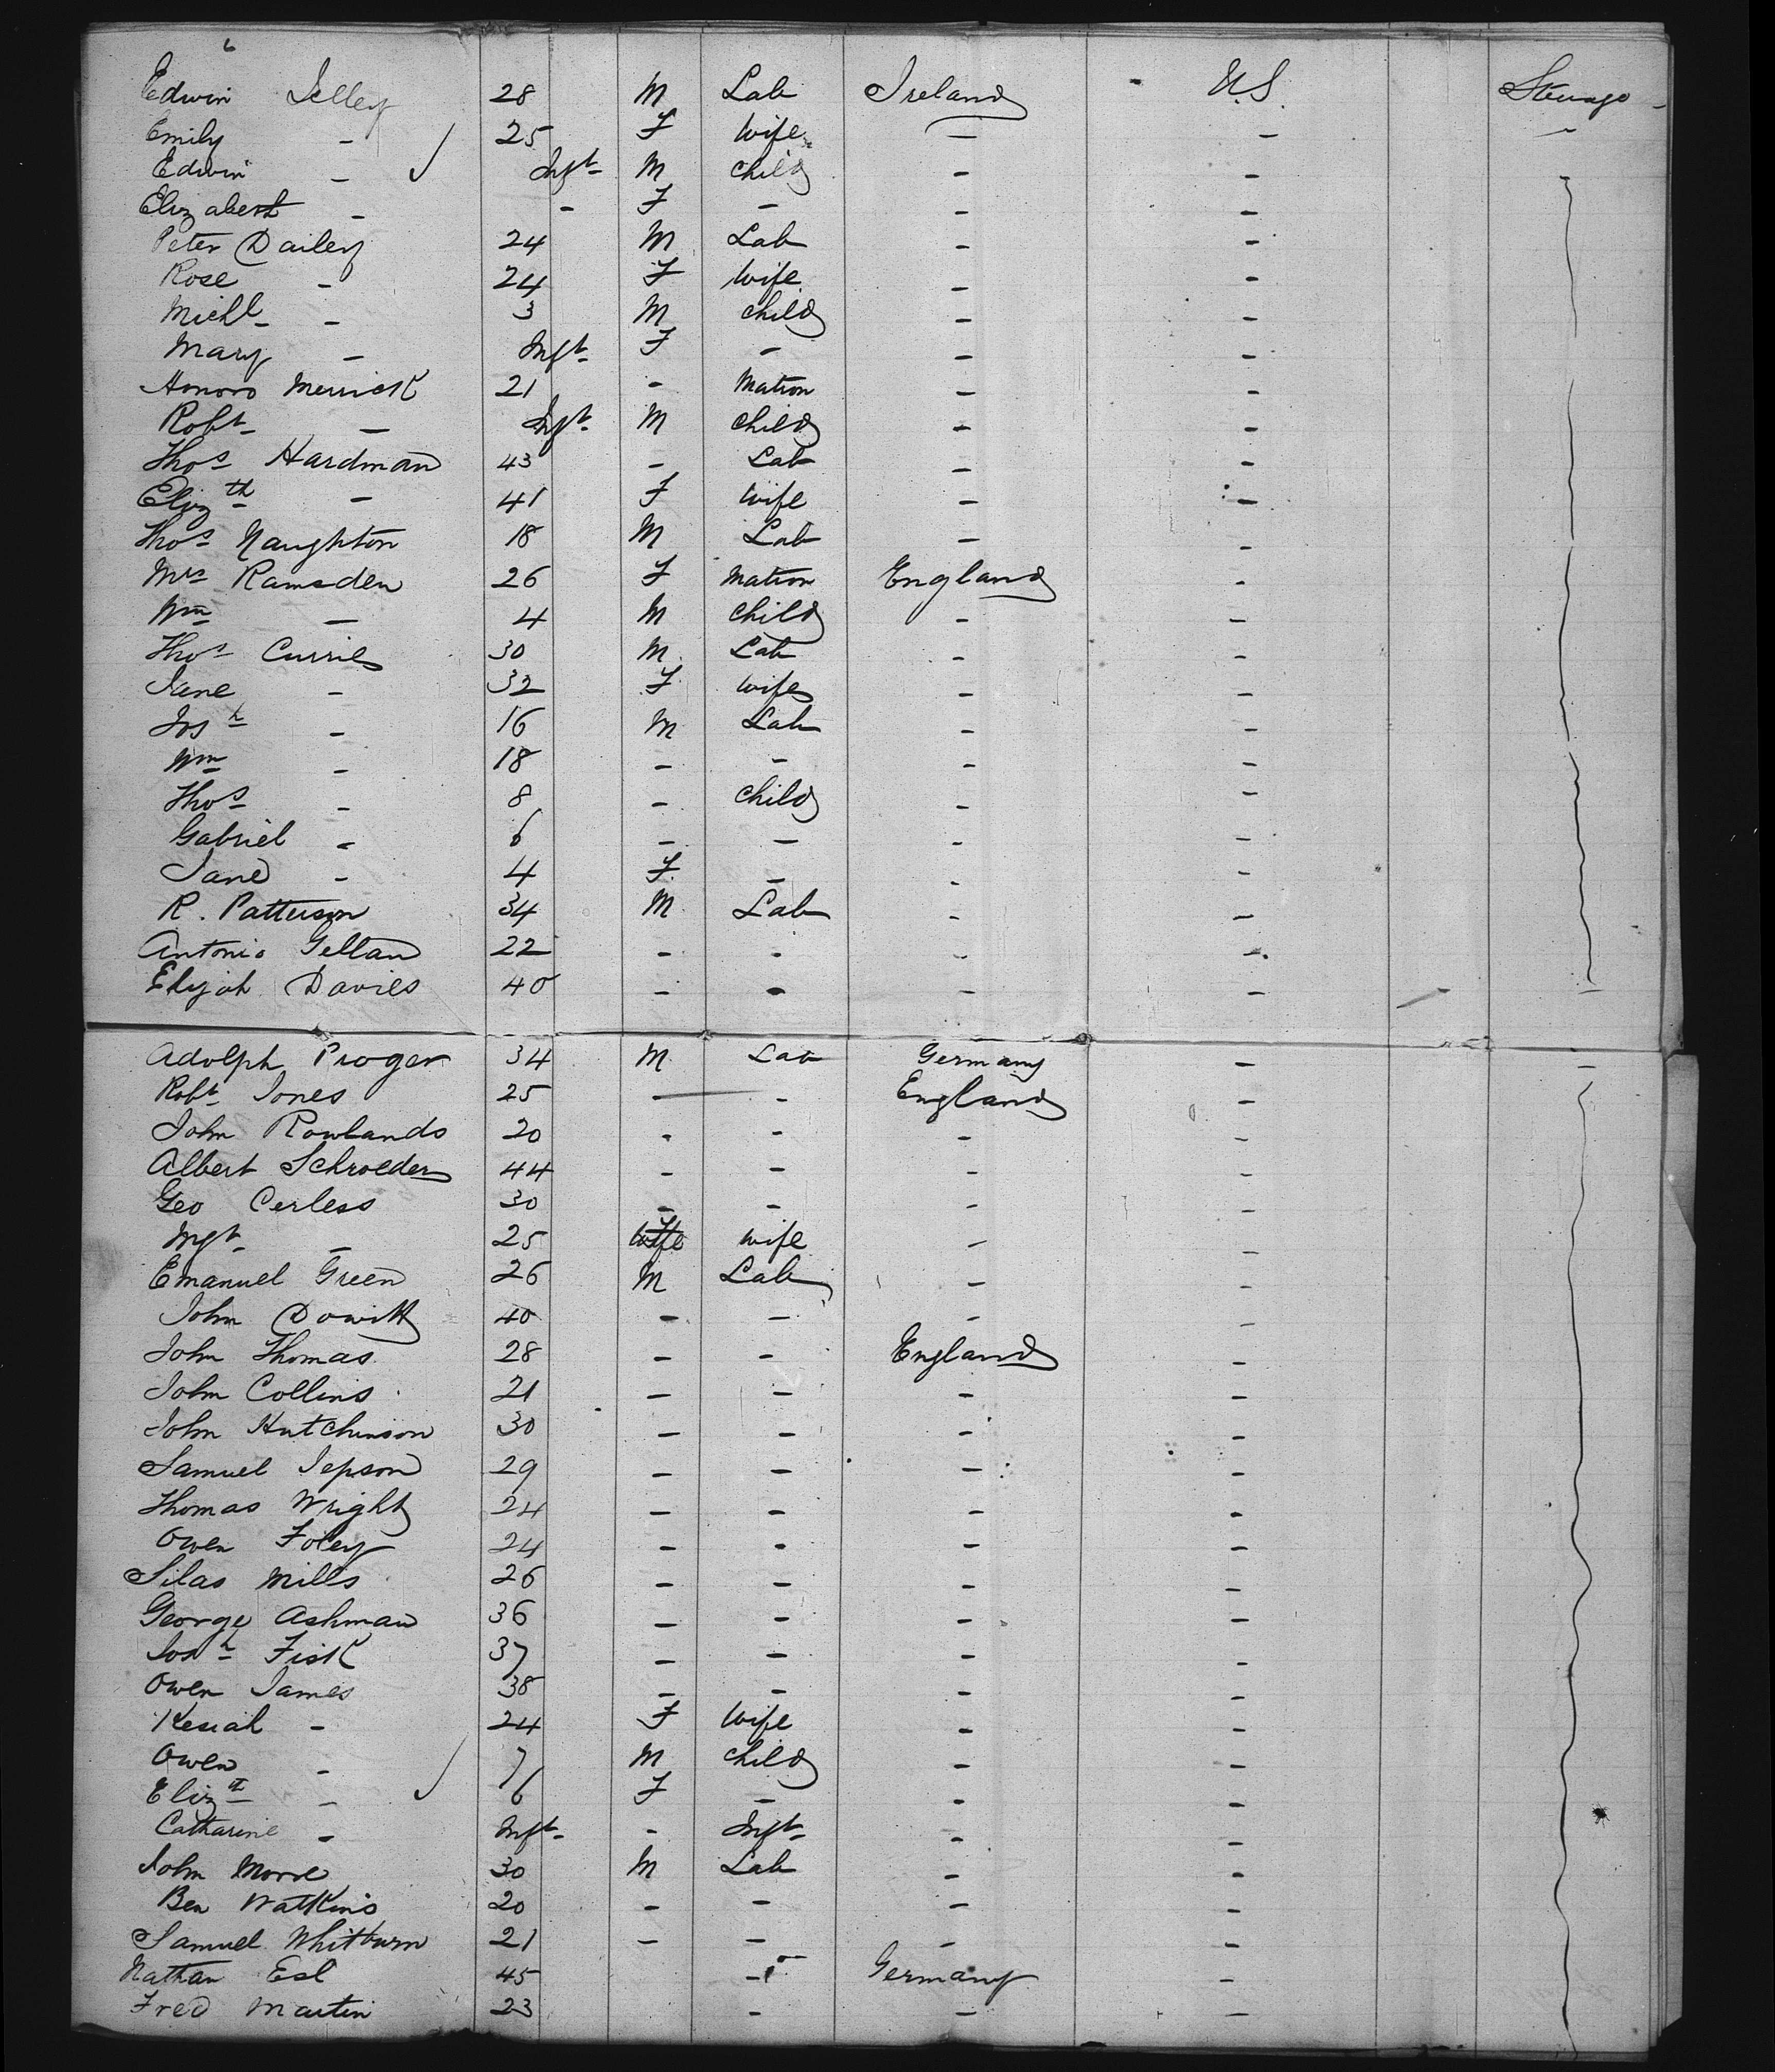 6
Edwin Jelley 28 M Lab Ireland - U.S. Steerage -
Emily - 25 F Wife - - -
Edwin - Inft- M Child - - -
Elizabeth - - F - - -
Peter Dailey 24 M Lab - -
Rose - 24 F Wife - -
Michl - 3 M Child - -
Mary - Inft- F - - -
Honoro Merrick 21 - Matron - -
Robt - Inft- M Child - -
Thos Hardman 43 - Lab - -
Elizth - 41 F Wife - -
Thos Naughton 18 M Lab - -
Mrs Ramsden 26 F Matron England -
Wm - 4 M Child - -
Thos Currie 30 M Lab - -
Jane - 32 F Wife - -
Josh - 16 M Lab - -
Wm - 18 - - - -
Thos - 8 - Child - -
Gabriel - 6 - - - -
Jane - 4 F - - -
R. Patterson 34 M Lab - -
Antonio Gellan 22 - - - -
Elijah Davies 40 - - - - -
Adolph Proger 34 M Lab Germany - -
Robt Jones 25 - - England -
John Rowlands 20 - - - -
Albert Schroeder 44 - - - -
Geo Cerless 30 - - - -
Mgt - 25 F wife - -
Emanuel Green 26 M Lab - -
John Dowitt 40 - - - -
John Thomas 28 - - England -
John Collins 21 - - - -
John Hutchinson 30 - - - -
Samuel Jepson 29 - - - -
Thomas Wright 24 - - - -
Owen Foley 24 - - - -
Silas Mills 26 - - - -
George Ashman 36 - - - -
Josh Fisk 37 - - - -
Owen James 38 - - - -
Kesiah - 24 F Wife - -
Owen - 7 M Child - -
Elizth - 6 F - - -
Catharine - Inft- - Inft- - -
John Morre 30 M Lab - -
Ben Watkins 20 - - - -
Samuel Whitburn 21 - - - -
Nathan Esl 45 - Germany -
Fred Martin 23 - - -